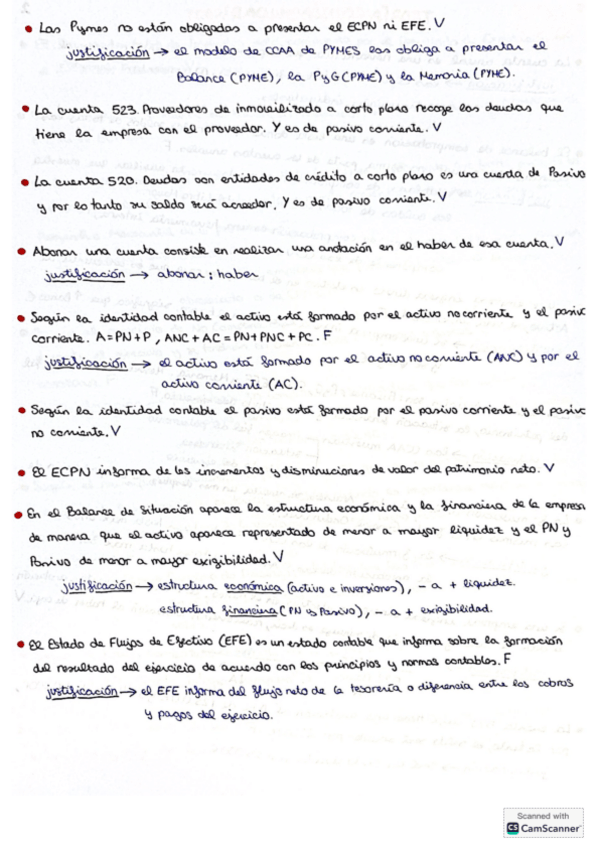 • Las Pymes no están obligadas a presentar el ECPN ni EFE. V
justificación → el modelo de CCAA de PYMES las obliga a presentar el
Balance (PYME), la PyG (PYME) y la Memoria (PYME).
• La cuenta 523. Proveedores de inmovilizado a corto plazo recoge las deudas que
tiene la empresa con el proveedor. Y es de pasivo corriente. V
• La cuenta 520. Deudas con entidades de crédito a corto plazo es una cuenta de Pasivo
y por lo tanto su saldo será acreedor. Y es de pasivo corriente. V
• Abonar una cuenta consiste en realizar una anotación en el haber de esa cuenta. V
justificación → abonar; haber
• Según la identidad contable el activo está formado por el activo no corriente y el pasivo
corriente. A=PN+P, ANC+AC=PN+PNC+PC. F
justificación → el activo está formado por el activo no corriente (ANC) y por el
activo corriente (AC).
• Según la identidad contable el pasivo está formado por el pasivo corriente y el pasivo
no corriente. V
• El ECPN informa de los incrementos y disminuciones de valor del patrimonio neto. V
• En el Balance de Situación aparece la estructura económica y la financiera de la empresa
de manera que el activo aparece representado de menor a mayor liquidez y el PN y
Pasivo de menor a mayor exigibilidad. V
justificación → estructura económica (activo e inversiones), - a + liquidez.
estructura financiera (PN y Pasivo), - a + exigibilidad.
• El Estado de Flujos de Efectivo (EFE) es un estado contable que informa sobre la formación
del resultado del ejercicio de acuerdo con los principios y normas contables. F
justificación → el EFE informa del flujo neto de la tesorería o diferencia entre los cobros
y pagos del ejercicio.
Scanned with
CS CamScanner